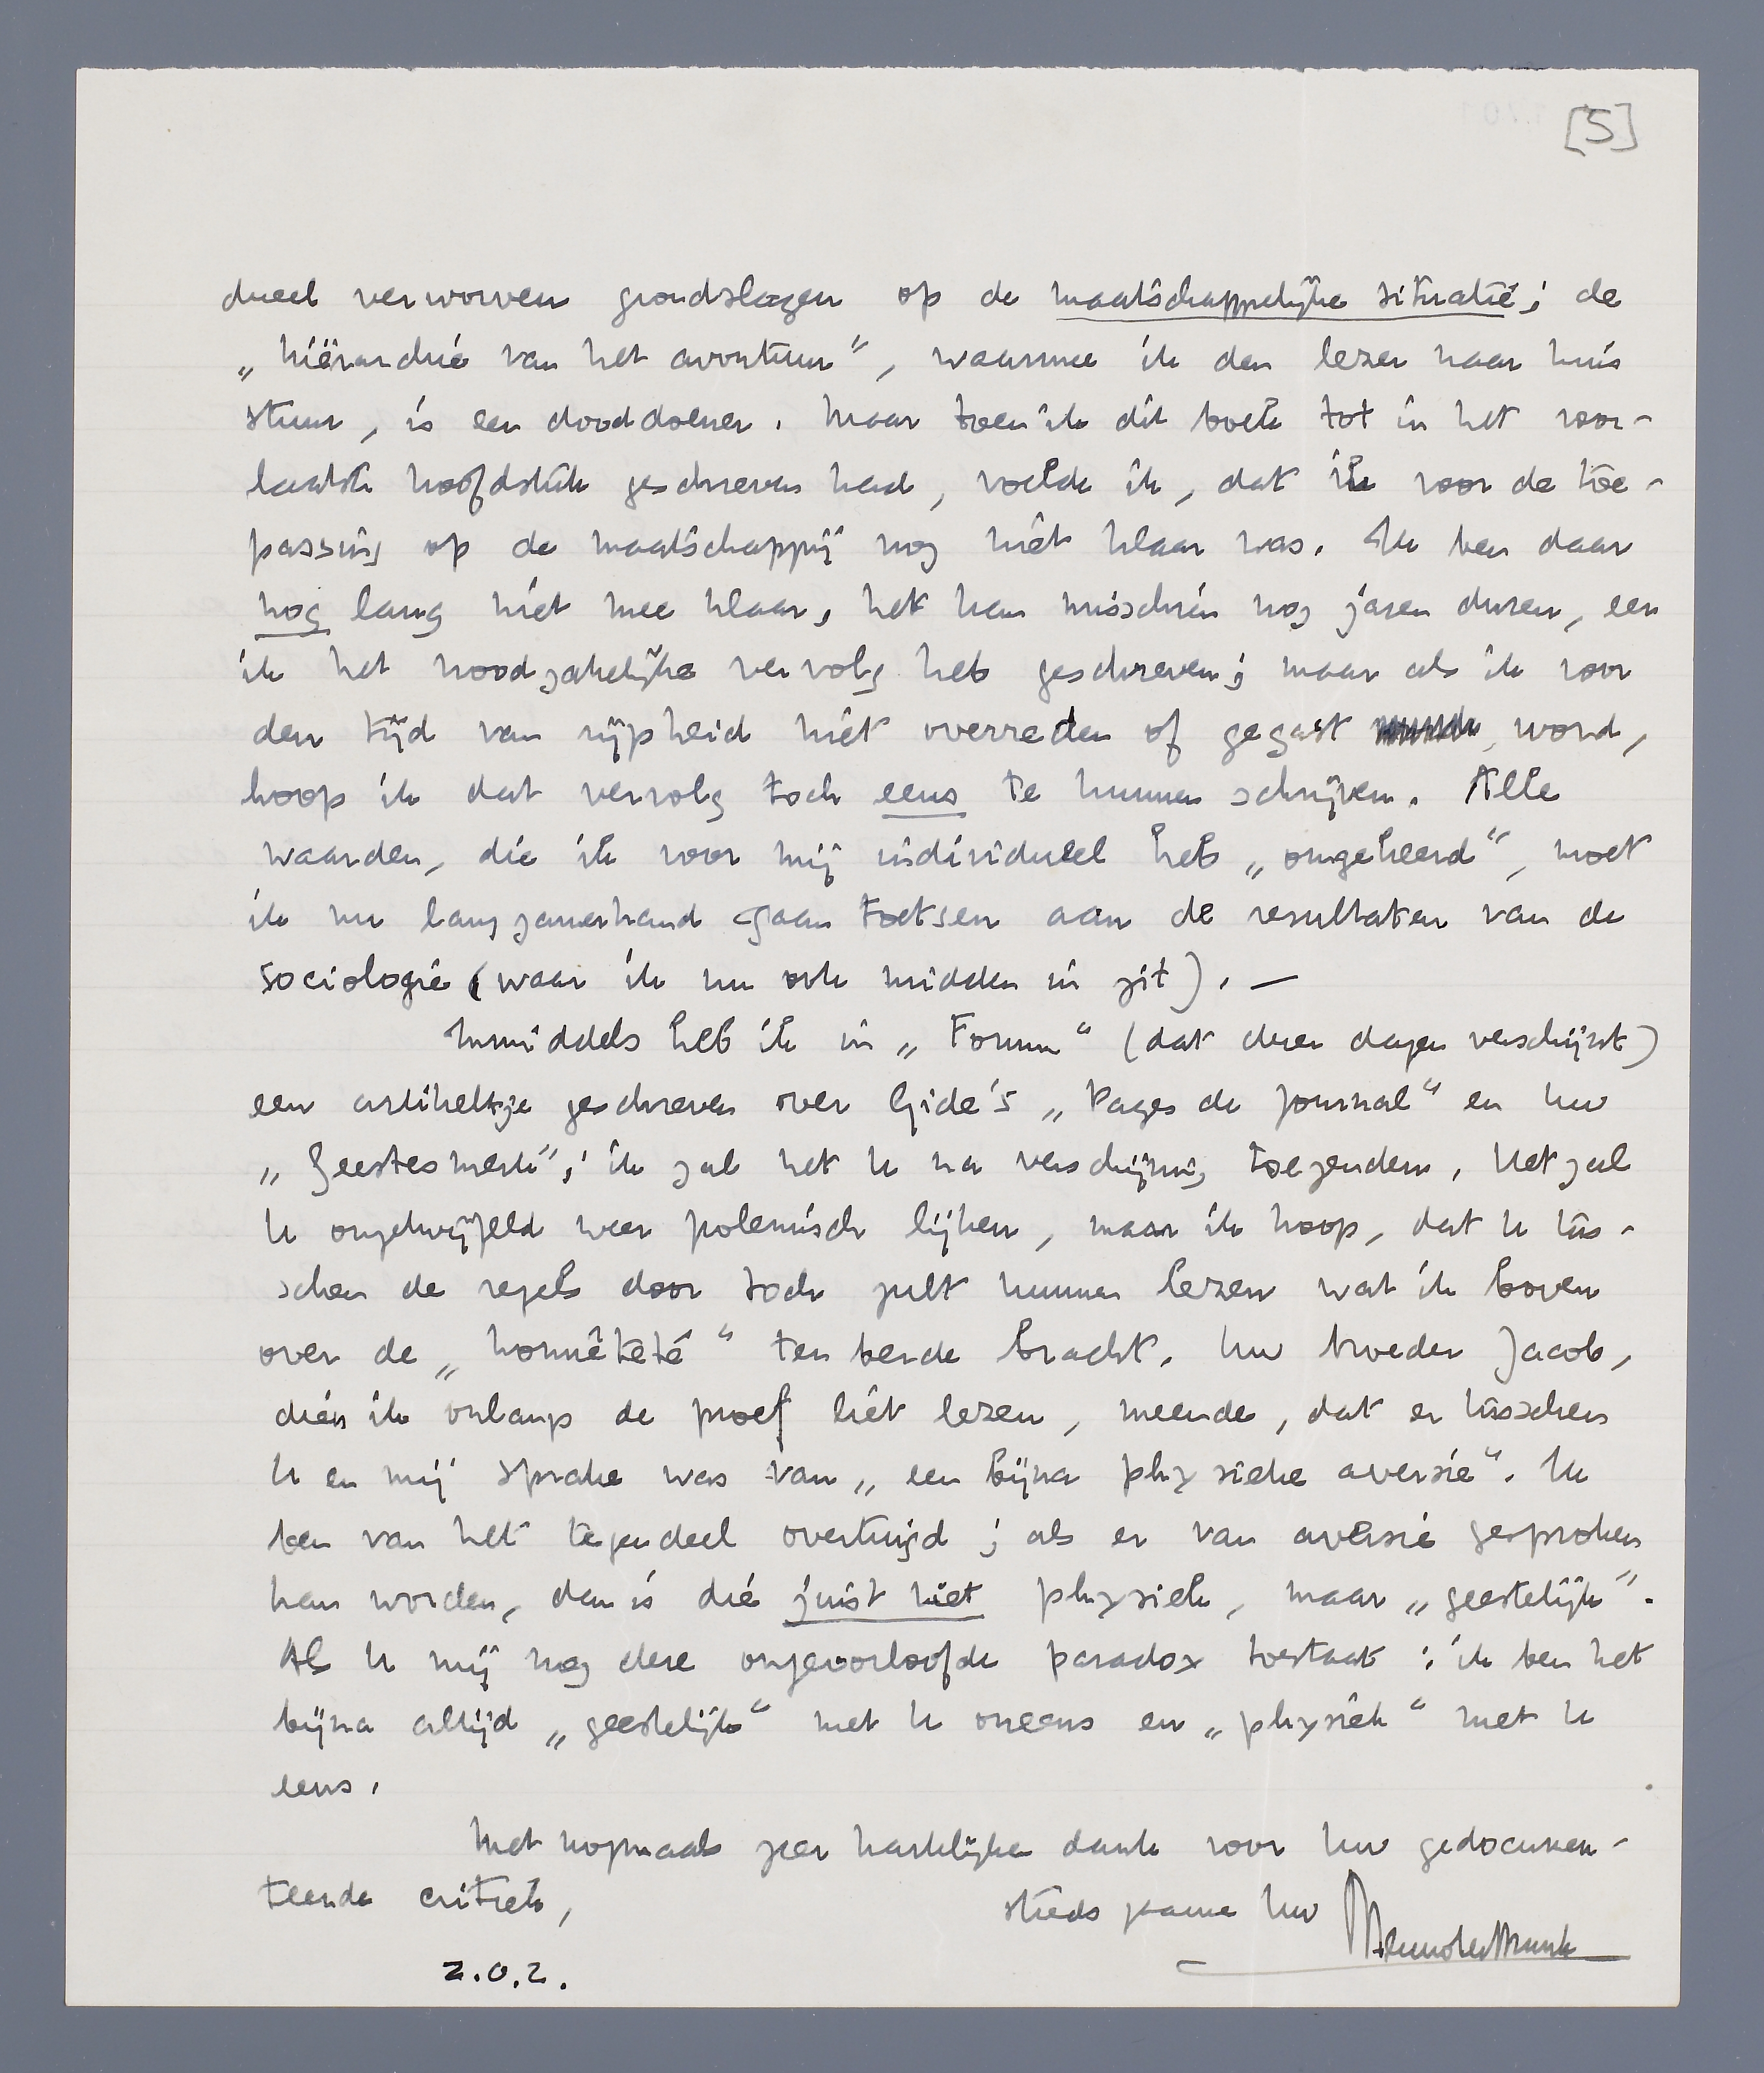 [5]
dueel verworven grondslagen op de maatschappelijke situatie; de
„hiërarchie van het avontuur”, waarmee ik den lezer naar huis
stuur, is een dooddoener. Maar toen ik dit boek tot in het voor-
laatste hoofdstuk geschreven had, voelde ik, dat ik voor de toe-
passing op de maatschappij nog niet klaar was. Ik ben daar
nog lang niet mee klaar, het kan misschien nog jaren duren, eer
ik het noodzakelijke vervolg heb geschreven; maar als ik voor
den tijd van rijpheid niet overreden of gegast word,
hoop ik dat vervolg toch eens te kunnen schrijven. Alle
waarden, die ik voor mij individueel heb „omgekeerd”, moet
ik nu langzamerhand gaan toetsen aan de resultaten van de
sociologie (waar ik nu ook midden in zit). —
Inmiddels heb ik in „Forum” (dat dezer dagen verschijnt)
een artikeltje geschreven over Gide's „Pages de Journal” en Uw
„Geestesmerk”; ik zal het U na verschijning toezenden. Het zal
U ongetwijfeld weer polemisch lijken, maar ik hoop, dat U tus-
schen de regels door toch zult kunnen lezen wat ik boven
over de „honnêteté” ten berde bracht. Uw broeder Jacob,
dien ik onlangs de proef liet lezen, meende, dat er tusschen
U en mij sprake was van „een bijna physieke aversie”. Ik
ben van het tegendeel overtuigd; als er van aversie gesproken
kan worden, dan is die juist niet physiek, maar „geestelijk”.
Als U mij nog deze ongeoorloofde paradox toestaat: ik ben het
bijna altijd „geestelijk” met U oneens en „physiek” met U
eens.
Met nogmaals zeer hartelijken dank voor Uw gedocumen-
teerde critiek,
steeds gaarne Uw
Menno ter Braak
z.o.z.